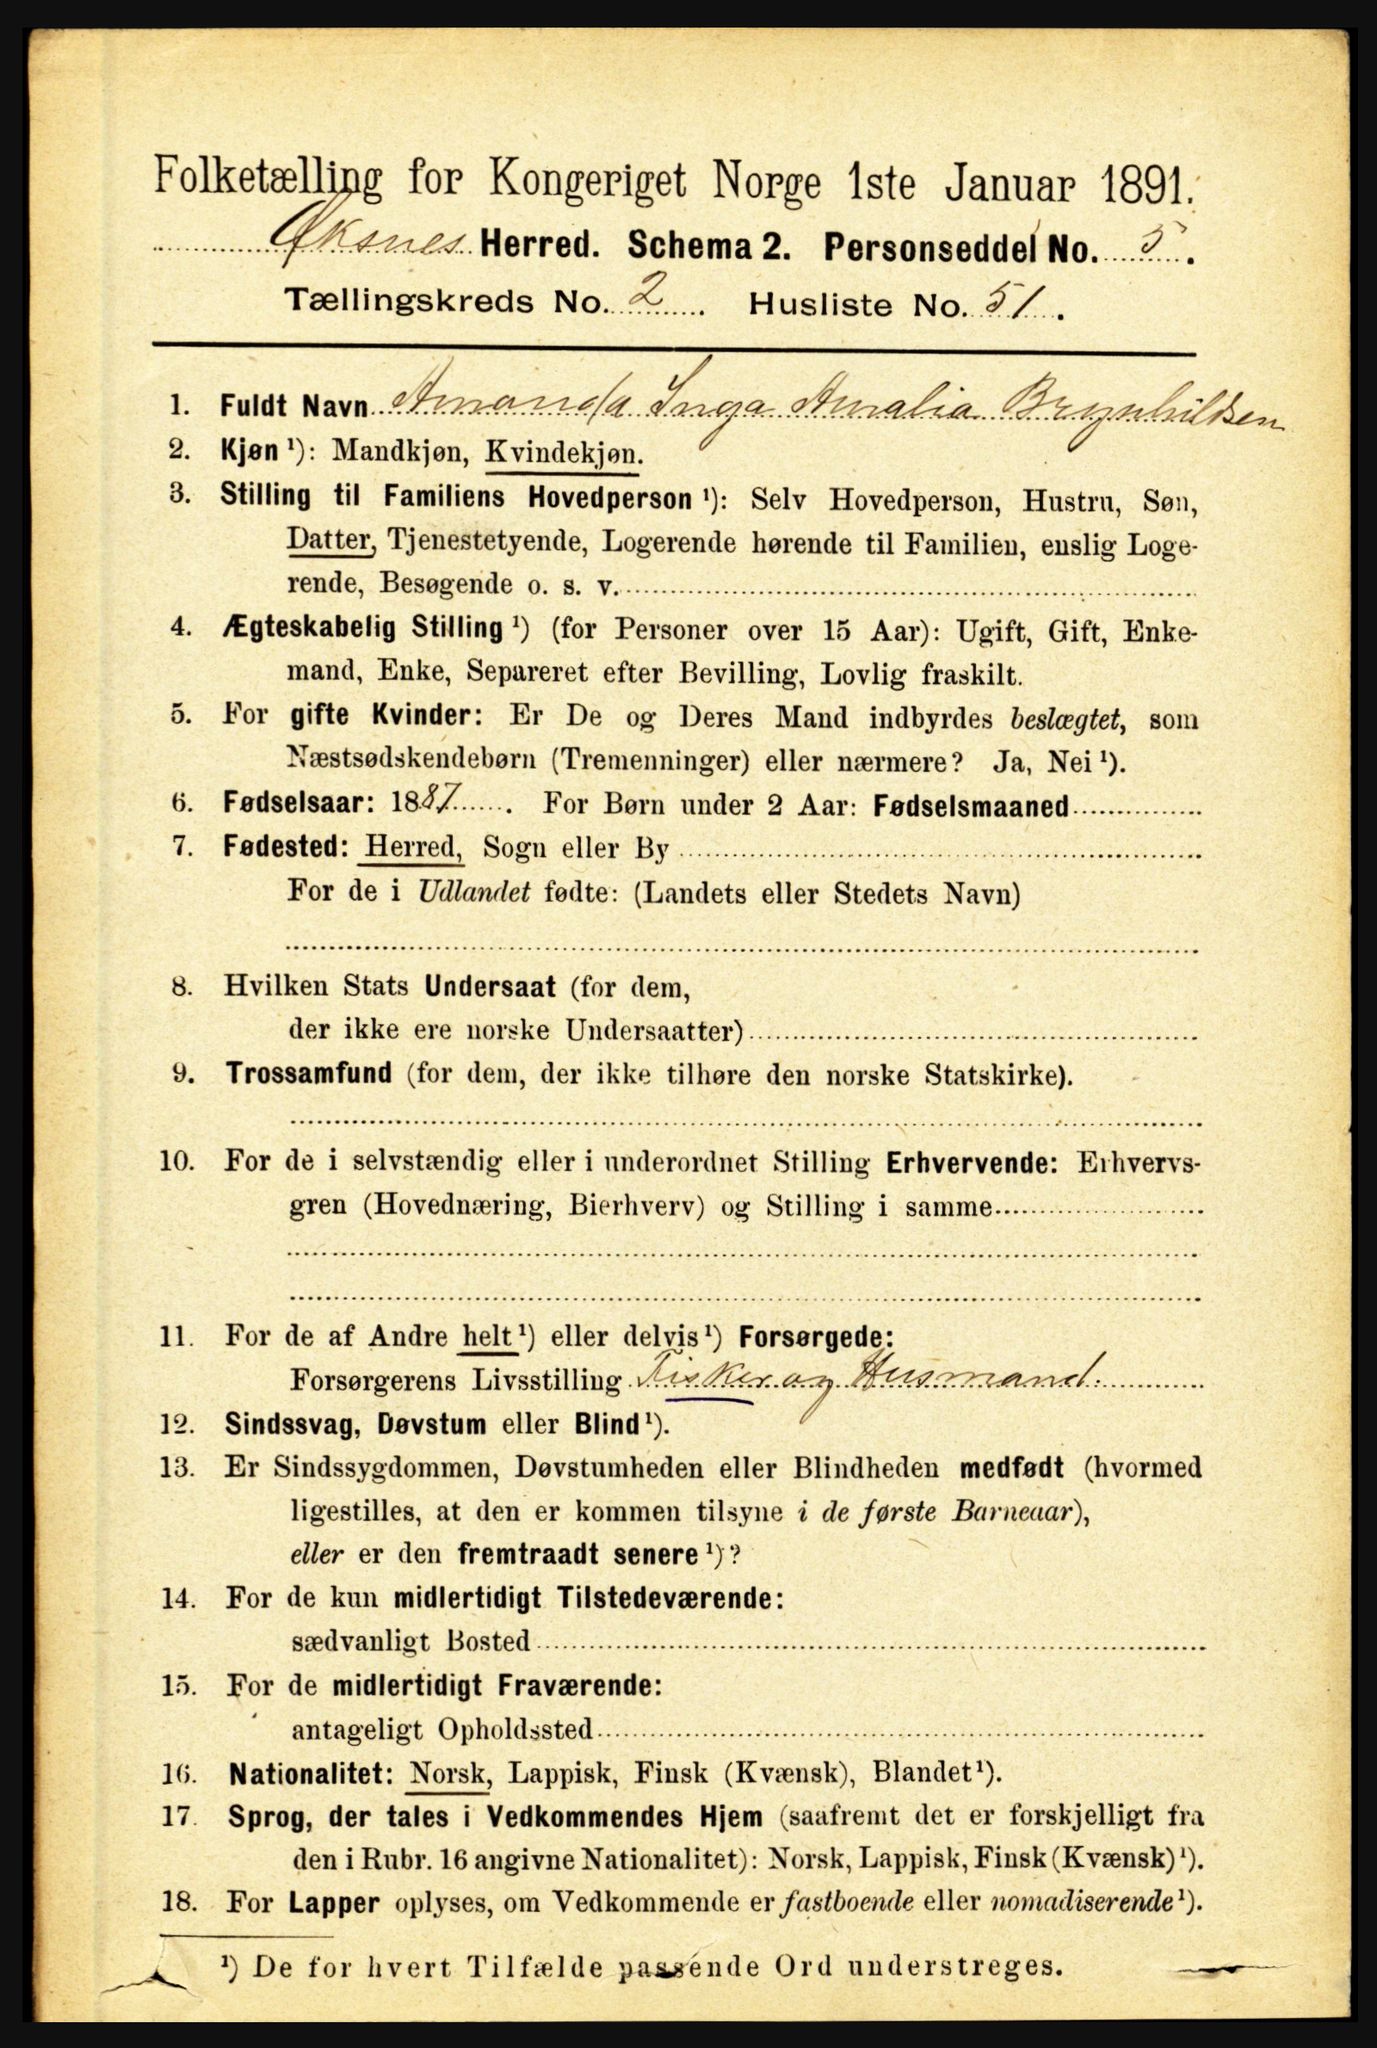 Folketælling for Kongeriget Norge 1ste Januar 1891.
Øksnes Herred. Schema 2. Personseddel No. 5.
Tællingskreds No. 2. Husliste No. 51.
1. Fuldt Navn Amanda Inga Amalia Brynhildsen
2. Kjøn ¹): Mandkjøn, Kvindekjøn.
3. Stilling til Familiens Hovedperson ¹): Selv Hovedperson, Hustru, Søn,
Datter, Tjenestetyende, Logerende hørende til Familien, enslig Loge-
rende, Besøgende o. s. v.
4. Ægteskabelig Stilling ¹) (for Personer over 15 Aar): Ugift, Gift, Enke-
mand, Enke, Separeret efter Bevilling, Lovlig fraskilt.
5. For gifte Kvinder: Er De og Deres Mand indbyrdes beslægtet, som
Næstsødskendebørn (Tremenninger) eller nærmere? Ja, Nei ¹).
6. Fødselsaar: 1887. For Børn under 2 Aar: Fødselsmaaned
7. Fødested: Herred, Sogn eller By
For de i Udlandet fødte: (Landets eller Stedets Navn)
8. Hvilken Stats Undersaat (for dem,
der ikke ere norske Undersaatter)
9. Trossamfund (for dem, der ikke tilhøre den norske Statskirke).
10. For de i selvstændig eller i underordnet Stilling Erhvervende: Erhvervs-
gren (Hovednæring, Bierhverv) og Stilling i samme
11. For de af Andre helt ¹) eller delvis ¹) Forsørgede:
Forsørgerens Livsstilling Fisker og Husmand.
12. Sindssvag, Døvstum eller Blind ¹).
13. Er Sindssygdommen, Døvstumheden eller Blindheden medfødt (hvormed
ligestilles, at den er kommen tilsyne i de første Barneaar),
eller er den fremtraadt senere ¹)?
14. For de kun midlertidigt Tilstedeværende:
sædvanligt Bosted
15. For de midlertidigt Fraværende:
antageligt Opholdssted
16. Nationalitet: Norsk, Lappisk, Finsk (Kvænsk), Blandet ¹).
17. Sprog, der tales i Vedkommendes Hjem (saafremt det er forskjelligt fra
den i Rubr. 16 angivne Nationalitet): Norsk, Lappisk, Finsk (Kvænsk) ¹).
18. For Lapper oplyses, om Vedkommende er fastboende eller nomadiserende ¹).
¹) De for hvert Tilfælde passende Ord understreges.